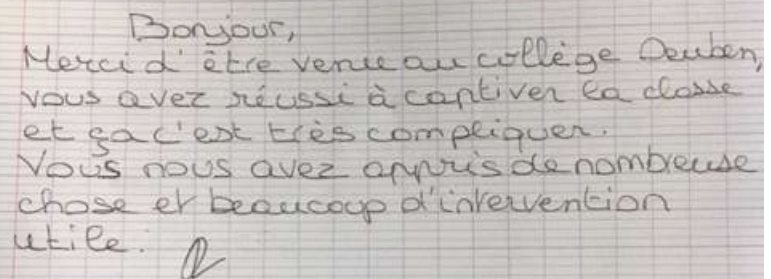 Bonjour,
Merci d'être venue au collège Deuben,
vous avez réussi à captiver la classe
et ça c'est très compliquer.
Vous nous avez appris de nombreuse
chose et beaucoup d'intervention
utile.